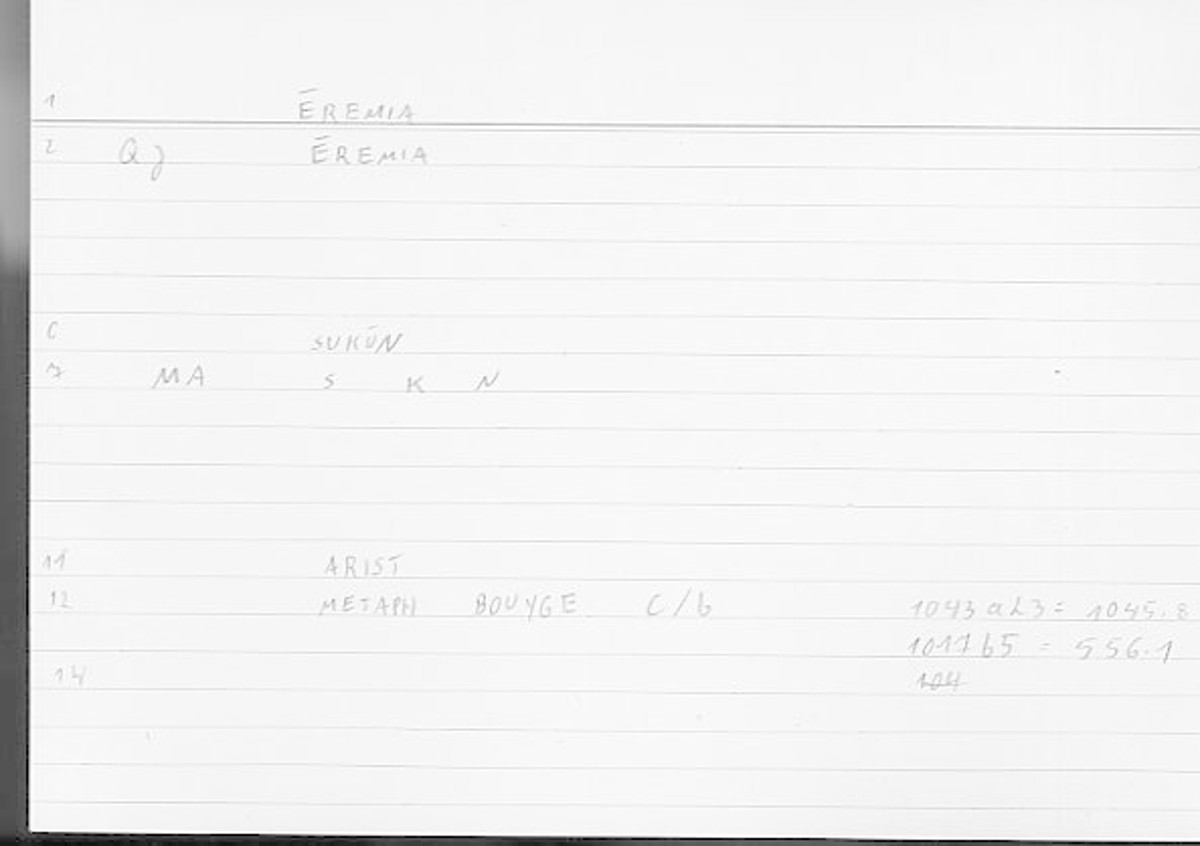 1 ĒREMIA
2 Qj ĒREMIA
6 SUKŪN
7 MA S K N
11 ARIST
12 METAPH BOUYGE C/b 1043 a23 = 1045.8
1017b5 = 556.1
14 104